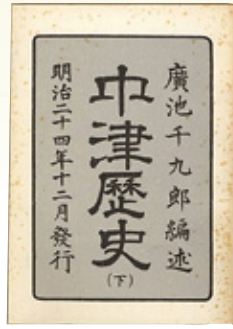 廣池千九郎編述
中津歴史
(下)
明治二十四年十二月發行